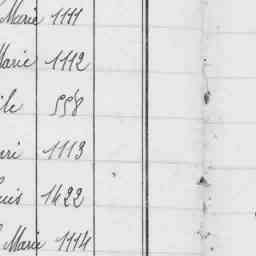 Marie 1111
Marie 1112
558
1113
1422
Marie 1114